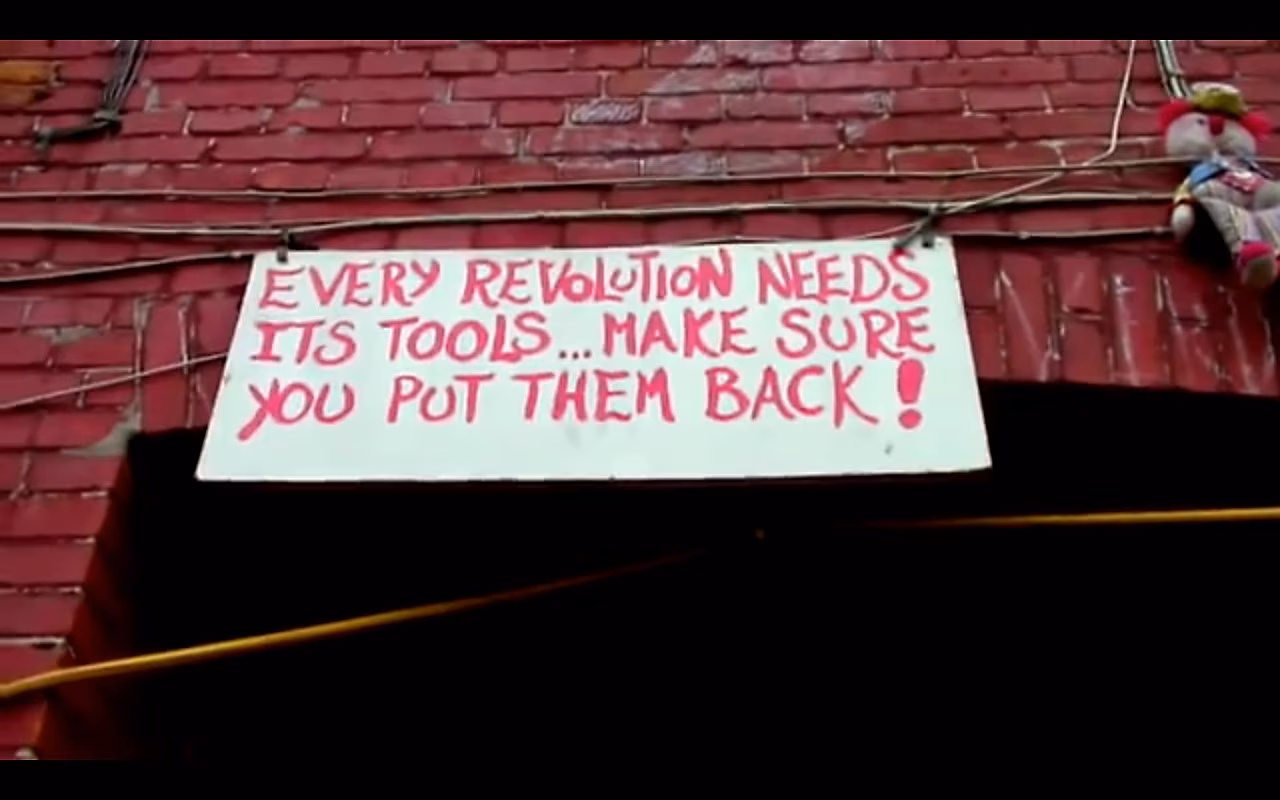 EVERY REVOLUTION NEEDS
ITS TOOLS...MAKE SURE
YOU PUT THEM BACK!